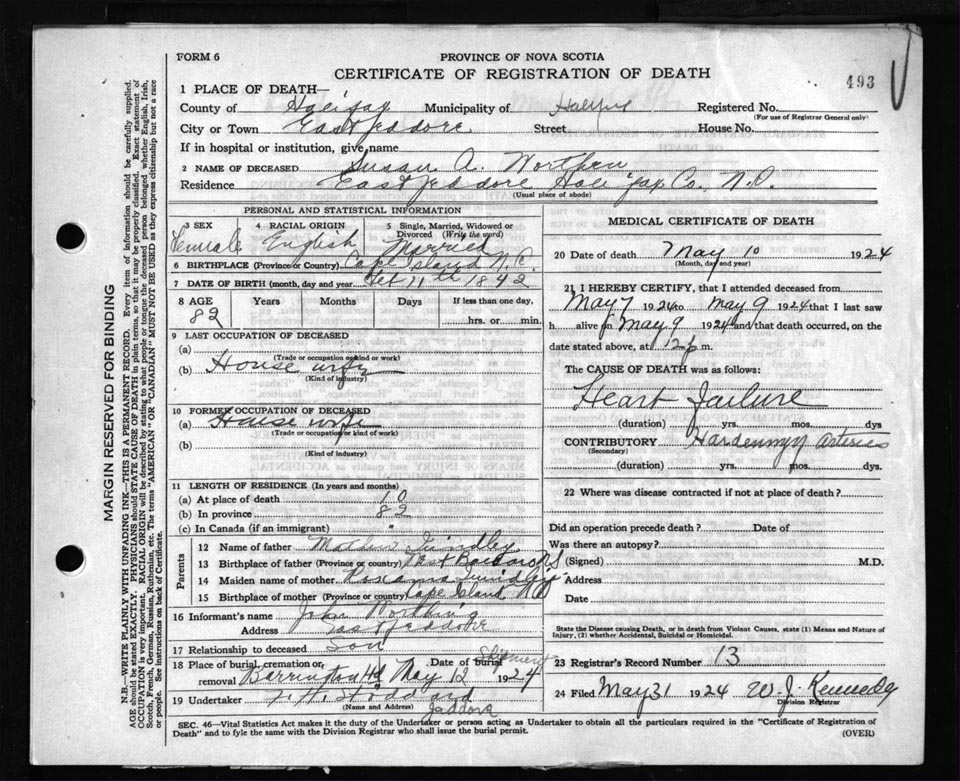 FORM 6
PROVINCE OF NOVA SCOTIA
CERTIFICATE OF REGISTRATION OF DEATH
493
1 PLACE OF DEATH—
County of Halifax Municipality of Halifax Registered No.
(For use of Registrar General only)
City or Town East Jeddore Street House No.
If in hospital or institution, give name
2 NAME OF DECEASED Susan A. Worthen
Residence East Jeddore Halifax Co. N.S.
(Usual place of abode)
PERSONAL AND STATISTICAL INFORMATION
3 SEX 4 RACIAL ORIGIN 5 Single, Married, Widowed or Divorced (Write the word)
Female English Married
6 BIRTHPLACE (Province or Country) Cape Island N.S.
7 DATE OF BIRTH (month, day and year) Feb 11th 1842
8 AGE Years Months Days If less than one day,
82 hrs. or min.
9 LAST OCCUPATION OF DECEASED
(a)
(Trade or occupation or kind of work)
(b) House wife
(Kind of industry)
10 FORMER OCCUPATION OF DECEASED
(a) House wife
(Trade or occupation or kind of work)
(b)
(Kind of industry)
11 LENGTH OF RESIDENCE (In years and months)
(a) At place of death 10
(b) In province 82
(c) In Canada (if an immigrant) "
Parents
12 Name of father
13 Birthplace of father (Province or Country) N S
14 Maiden name of mother
15 Birthplace of mother (Province or Country) Cape Island N S
16 Informant's name John
Address East Jeddore
17 Relationship to deceased Son
18 Place of burial, cremation, or removal Barrington Hd Date of burial Shipment May 12 1924
19 Undertaker Stoddard
(Name and Address) Jeddore
MEDICAL CERTIFICATE OF DEATH
20 Date of death May 10 1924
(Month, day and year)
21 I HEREBY CERTIFY, that I attended deceased from
May 7 1924 to May 9 1924 that I last saw
h alive on May 9 1924 and that death occurred, on the
date stated above, at 12 p m.
The CAUSE OF DEATH was as follows:
Heart Failure
(duration) yrs. mos. dys
CONTRIBUTORY Hardening arteries
(Secondary)
(duration) yrs. mos. dys.
22 Where was disease contracted if not at place of death?
Did an operation precede death? Date of
Was there an autopsy?
(Signed) M.D.
Address
Date
State the Disease causing Death, or in death from Violent Causes, state (1) Means and Nature of
Injury, (2) whether Accidental, Suicidal or Homicidal.
23 Registrar's Record Number 13
24 Filed May 31 1924 W. J. Kennedy
Division Registrar
SEC. 46—Vital Statistics Act makes it the duty of the Undertaker or person acting as Undertaker to obtain all the particulars required in the "Certificate of Registration of
Death" and to fyle the same with the Division Registrar who shall issue the burial permit.
(OVER)
MARGIN RESERVED FOR BINDING
N.B.—WRITE PLAINLY WITH UNFADING INK—THIS IS A PERMANENT RECORD. Every item of information should be carefully supplied.
AGE should be stated EXACTLY. PHYSICIANS should STATE CAUSE OF DEATH in plain terms, so that it may be properly classified. Exact statement of
OCCUPATION is very important. RACIAL ORIGIN will be described by stating to what people or tongue the deceased person belonged whether English, Irish,
Scotch, French, German, Russian, Ruthenian, etc. The terms "AMERICAN" OR "CANADIAN" MUST NOT BE USED as they express citizenship but not a race
or people. See instructions on back of Certificate.